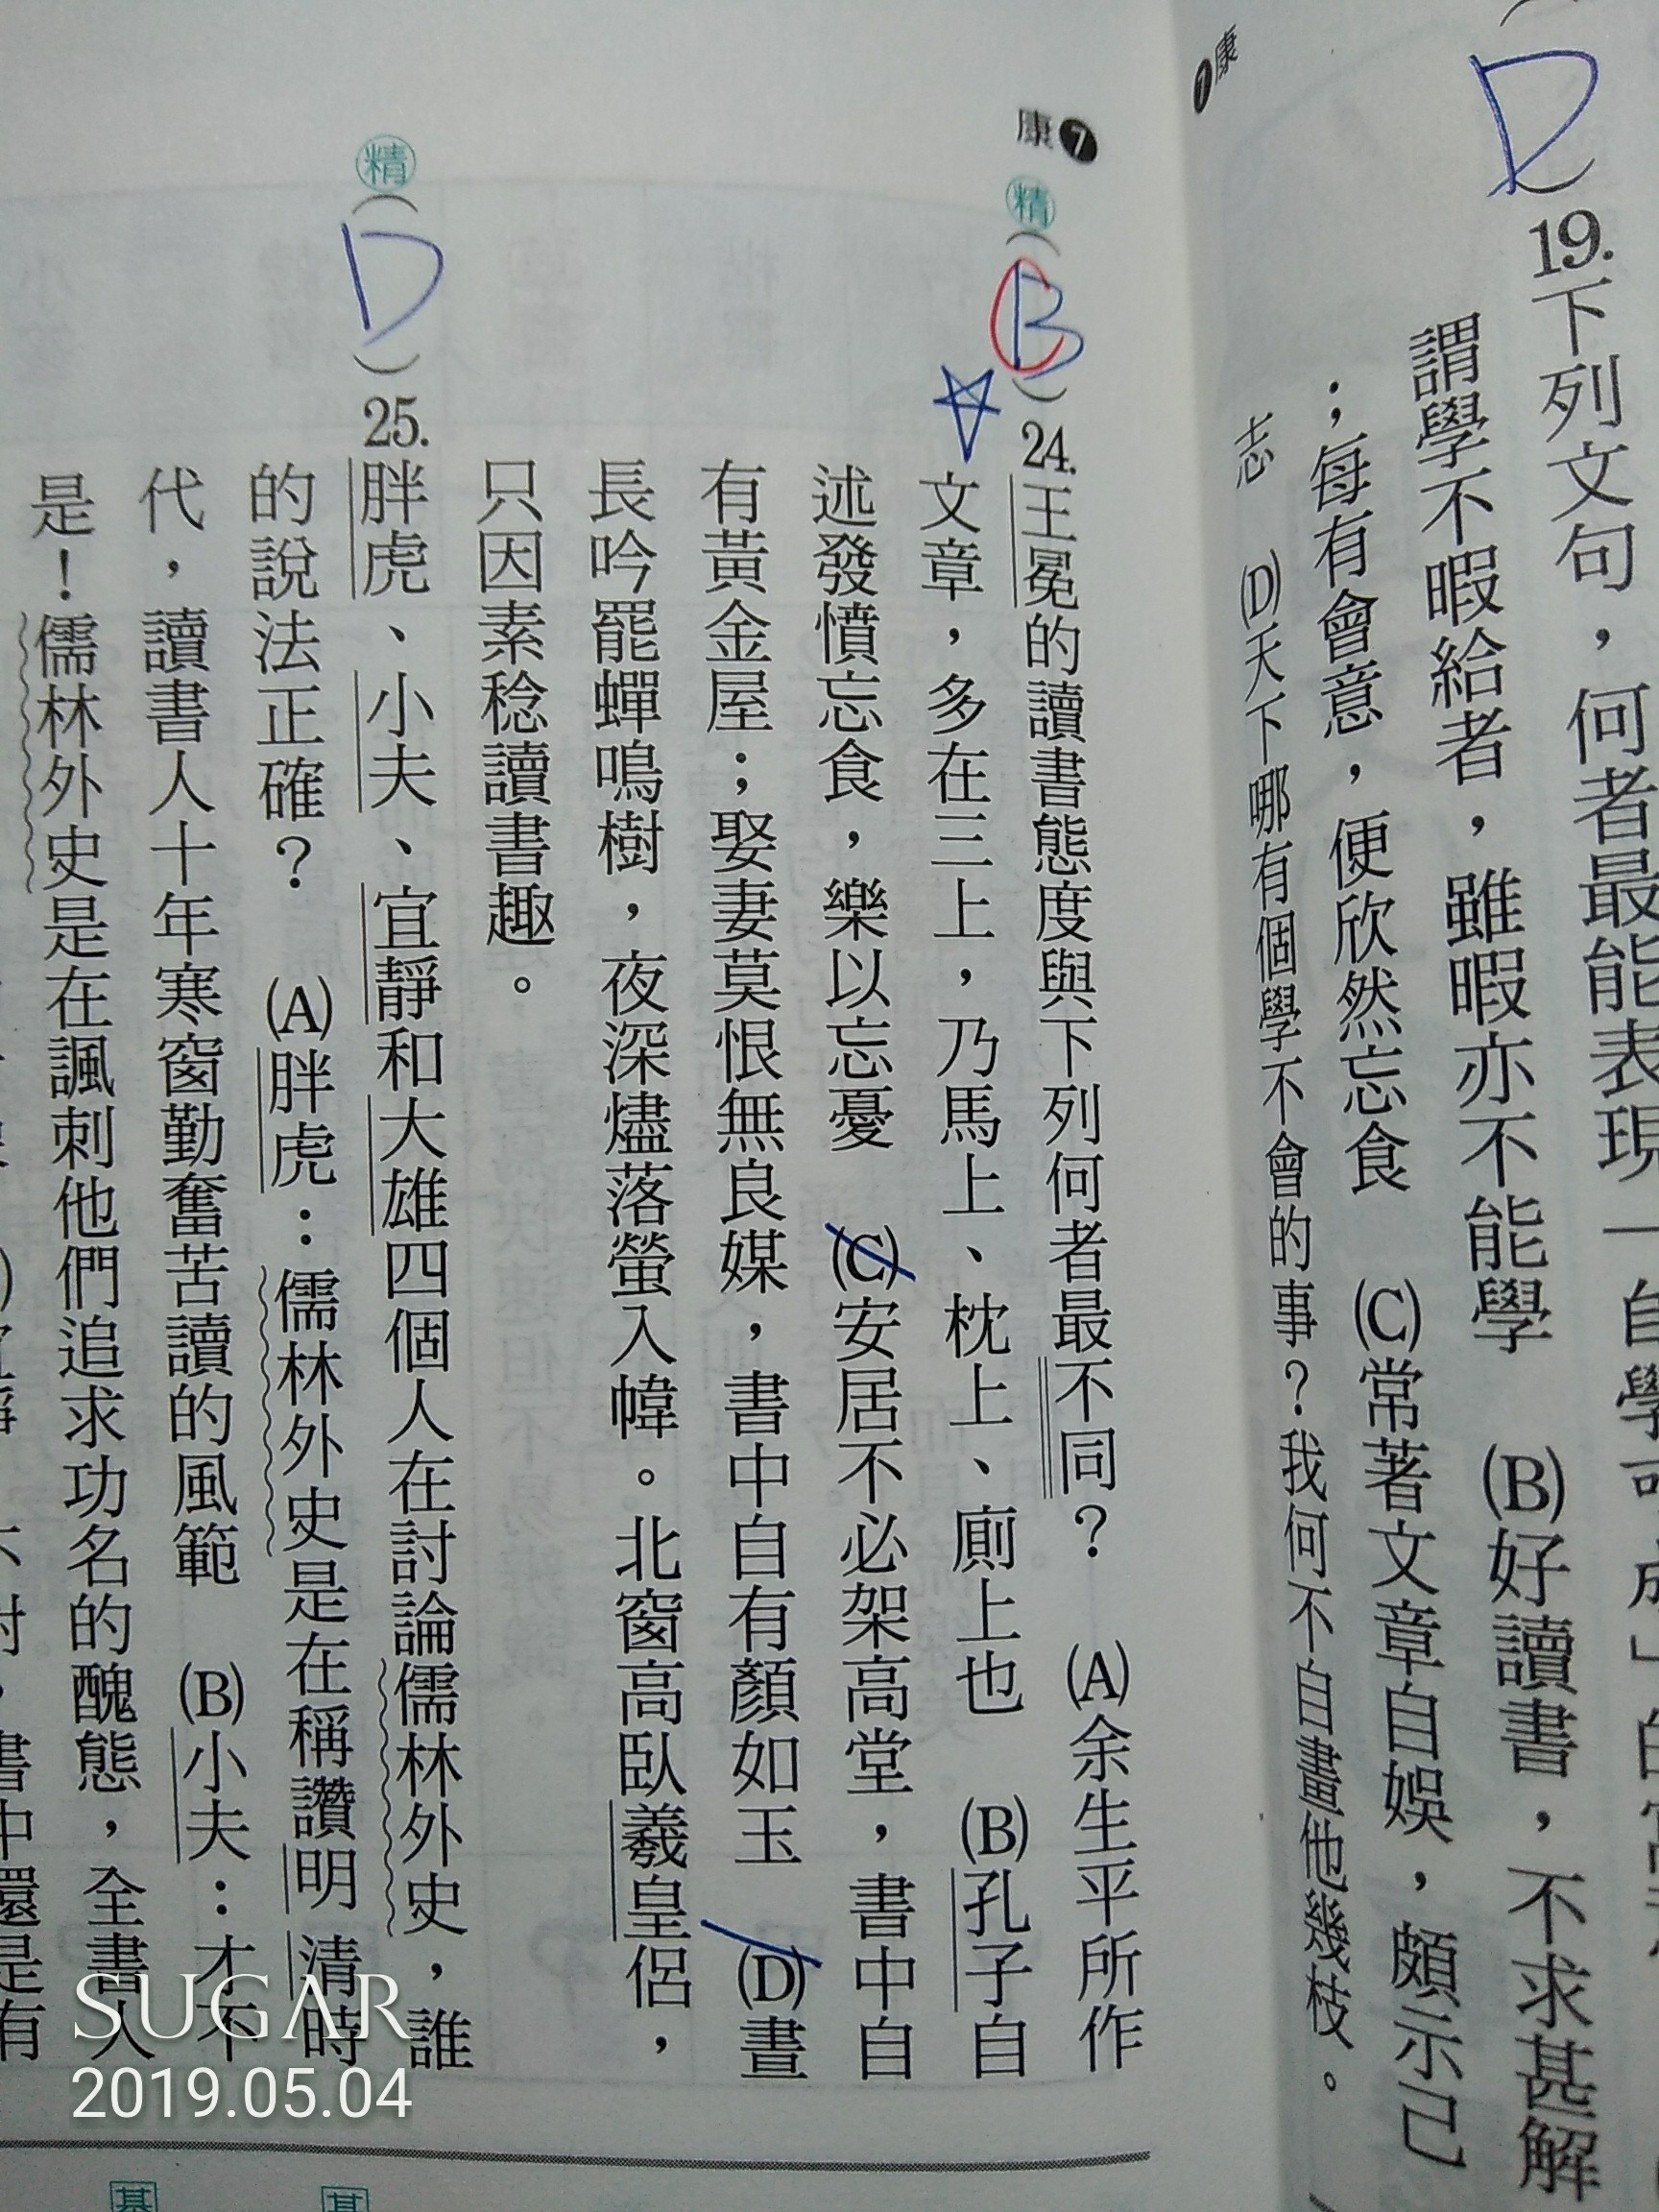 康7
D
19.下列文句，何者最能表現「自學可成」的
謂學不暇給者，雖暇亦不能學 (B)好讀書，不求甚解
；每有會意，便欣然忘食 (C)常著文章自娛，頗示己
志 (D)天下哪有個學不會的事？我何不自畫他幾枝。
康7
精(B)24.王冕的讀書態度與下列何者最不同？ (A)余生平所作
文章，多在三上，乃馬上、枕上、廁上也 (B)孔子自
述發憤忘食，樂以忘憂 (C)安居不必架高堂，書中自
有黃金屋；娶妻莫恨無良媒，書中自有顏如玉 (D)晝
長吟罷蟬鳴樹，夜深燼落螢入幃。北窗高臥羲皇侶，
只因素稔讀書趣。
精(D)25.胖虎、小夫、宜靜和大雄四個人在討論儒林外史，誰
的說法正確？ (A)胖虎：儒林外史是在稱讚明 清時
代，讀書人十年寒窗勤奮苦讀的風範 (B)小夫：才不
是！儒林外史是在諷刺他們追求功名的醜態，全書人
書中還是有
基
基
SUGAR
2019.05.04